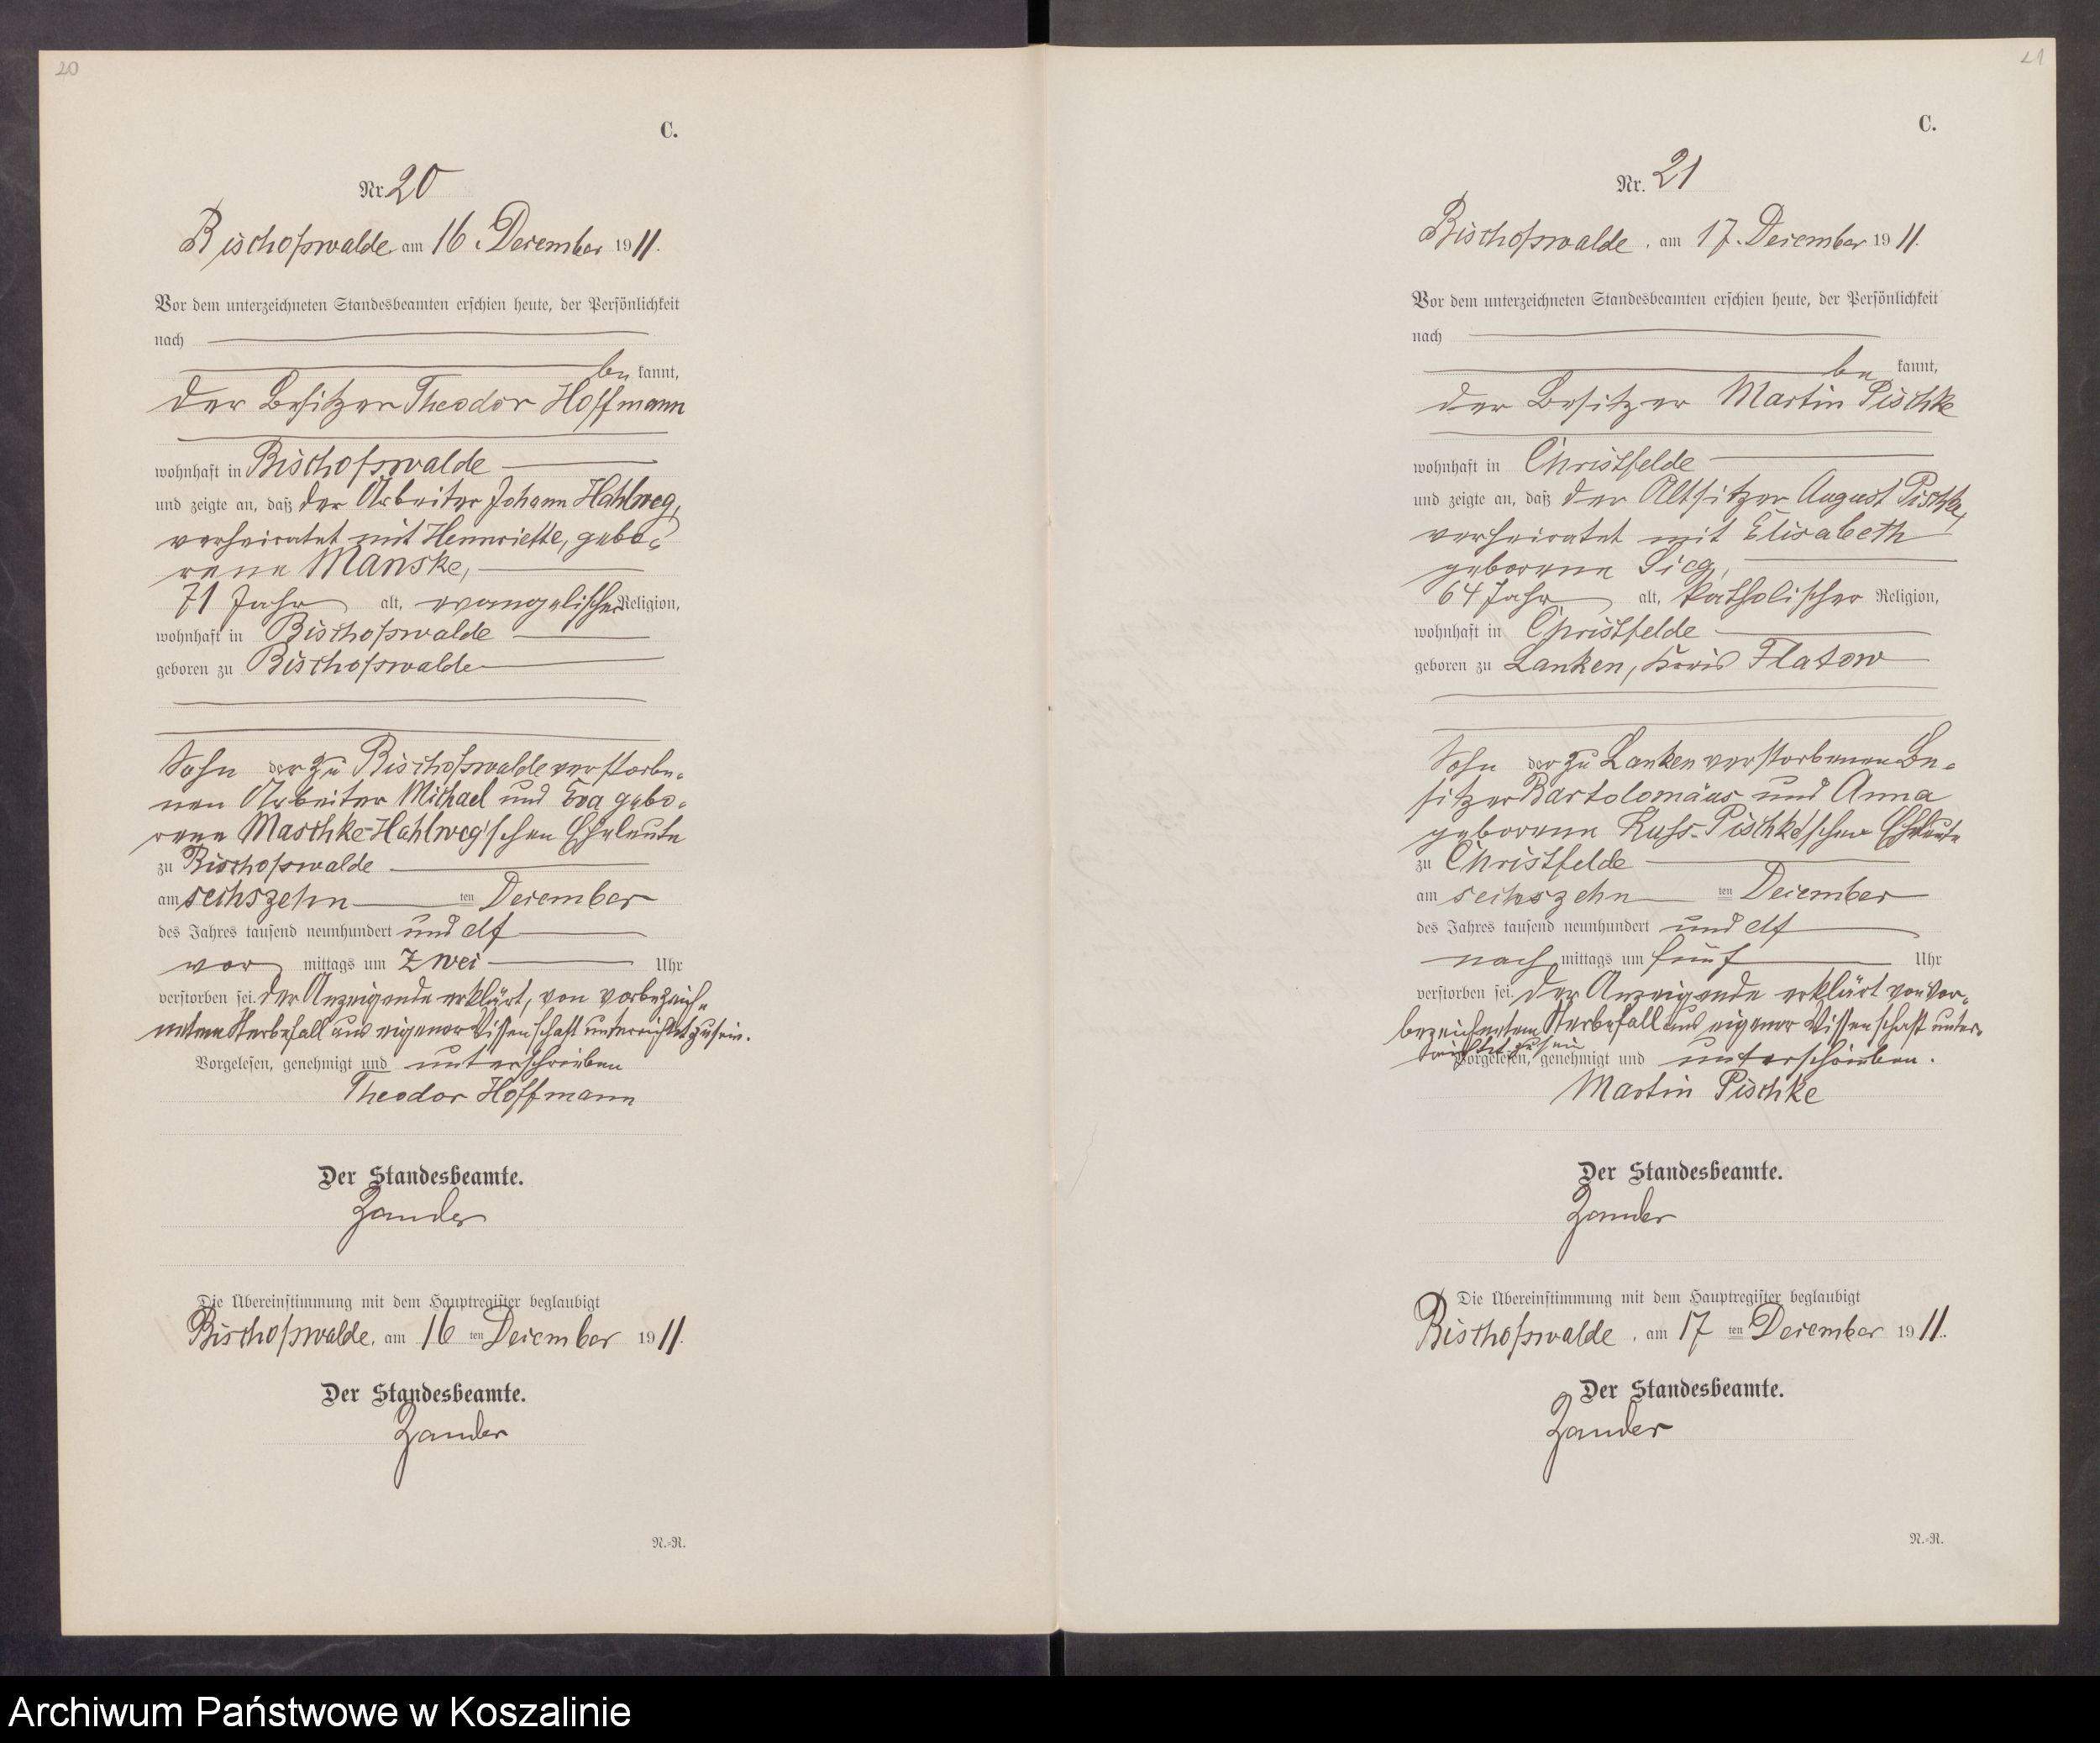 20
C.
Nr. 20
Bischofswalde, am 16. December 1911.
Vor dem unterzeichneten Standesbeamten erschien heute, der Persönlichkeit
nach
be kannt,
der Besitzer Theodor Hoffmann
wohnhaft in Bischofswalde
und zeigte an, daß der Arbeiter Johann Hahlweg,
verheiratet mit Hennriette, gebo-
rene Manske,
71 Jahr alt, evangelischer Religion,
wohnhaft in Bischofswalde
geboren zu Bischofswalde
Sohn der zu Bischofswalde verstorbe-
nen Arbeiter Michael und Eva gebo-
rene Maschke-Hahlweg'schen Eheleute
zu Bischofswalde
am sechszehn ten December
des Jahres tausend neunhundert und elf
vor mittags um zwei Uhr
verstorben sei. Der Anzeigende erklärt, von vorbezeich-
netem Sterbefall aus eigener Wissenschaft unterrichtet zu sein.
Vorgelesen, genehmigt und unterschrieben
Theodor Hoffmann
Der Standesbeamte.
Zander
Die Übereinstimmung mit dem Hauptregister beglaubigt
Bischofswalde, am 16 ten December 1911.
Der Standesbeamte.
Zander
N.-R.
21
C.
Nr. 21
Bischofswalde, am 17. December 1911.
Vor dem unterzeichneten Standesbeamten erschien heute, der Persönlichkeit
nach
be kannt,
der Besitzer Martin Pischke
wohnhaft in Christfelde
und zeigte an, daß der Altsitzer August Pischke,
verheiratet mit Elisabeth
geborene Sieg,
64 Jahr alt, katholischer Religion,
wohnhaft in Christfelde
geboren zu Lanken, Kreis Flatow
Sohn der zu Lanken verstorbenen Be-
sitzer Bartolomäus und Anna
geborene Kuss-Pischke'schen Eheleute
zu Christfelde
am sechszehn ten December
des Jahres tausend neunhundert und elf
nach mittags um fünf Uhr
verstorben sei. Der Anzeigende erklärt von vor-
bezeichnetem Sterbefall aus eigener Wissenschaft unter-
richtet zu sein
Vorgelesen, genehmigt und unterschrieben.
Martin Pischke
Der Standesbeamte.
Zander
Die Übereinstimmung mit dem Hauptregister beglaubigt
Bischofswalde, am 17 ten December 1911.
Der Standesbeamte.
Zander
N.-R.
Archiwum Państwowe w Koszalinie